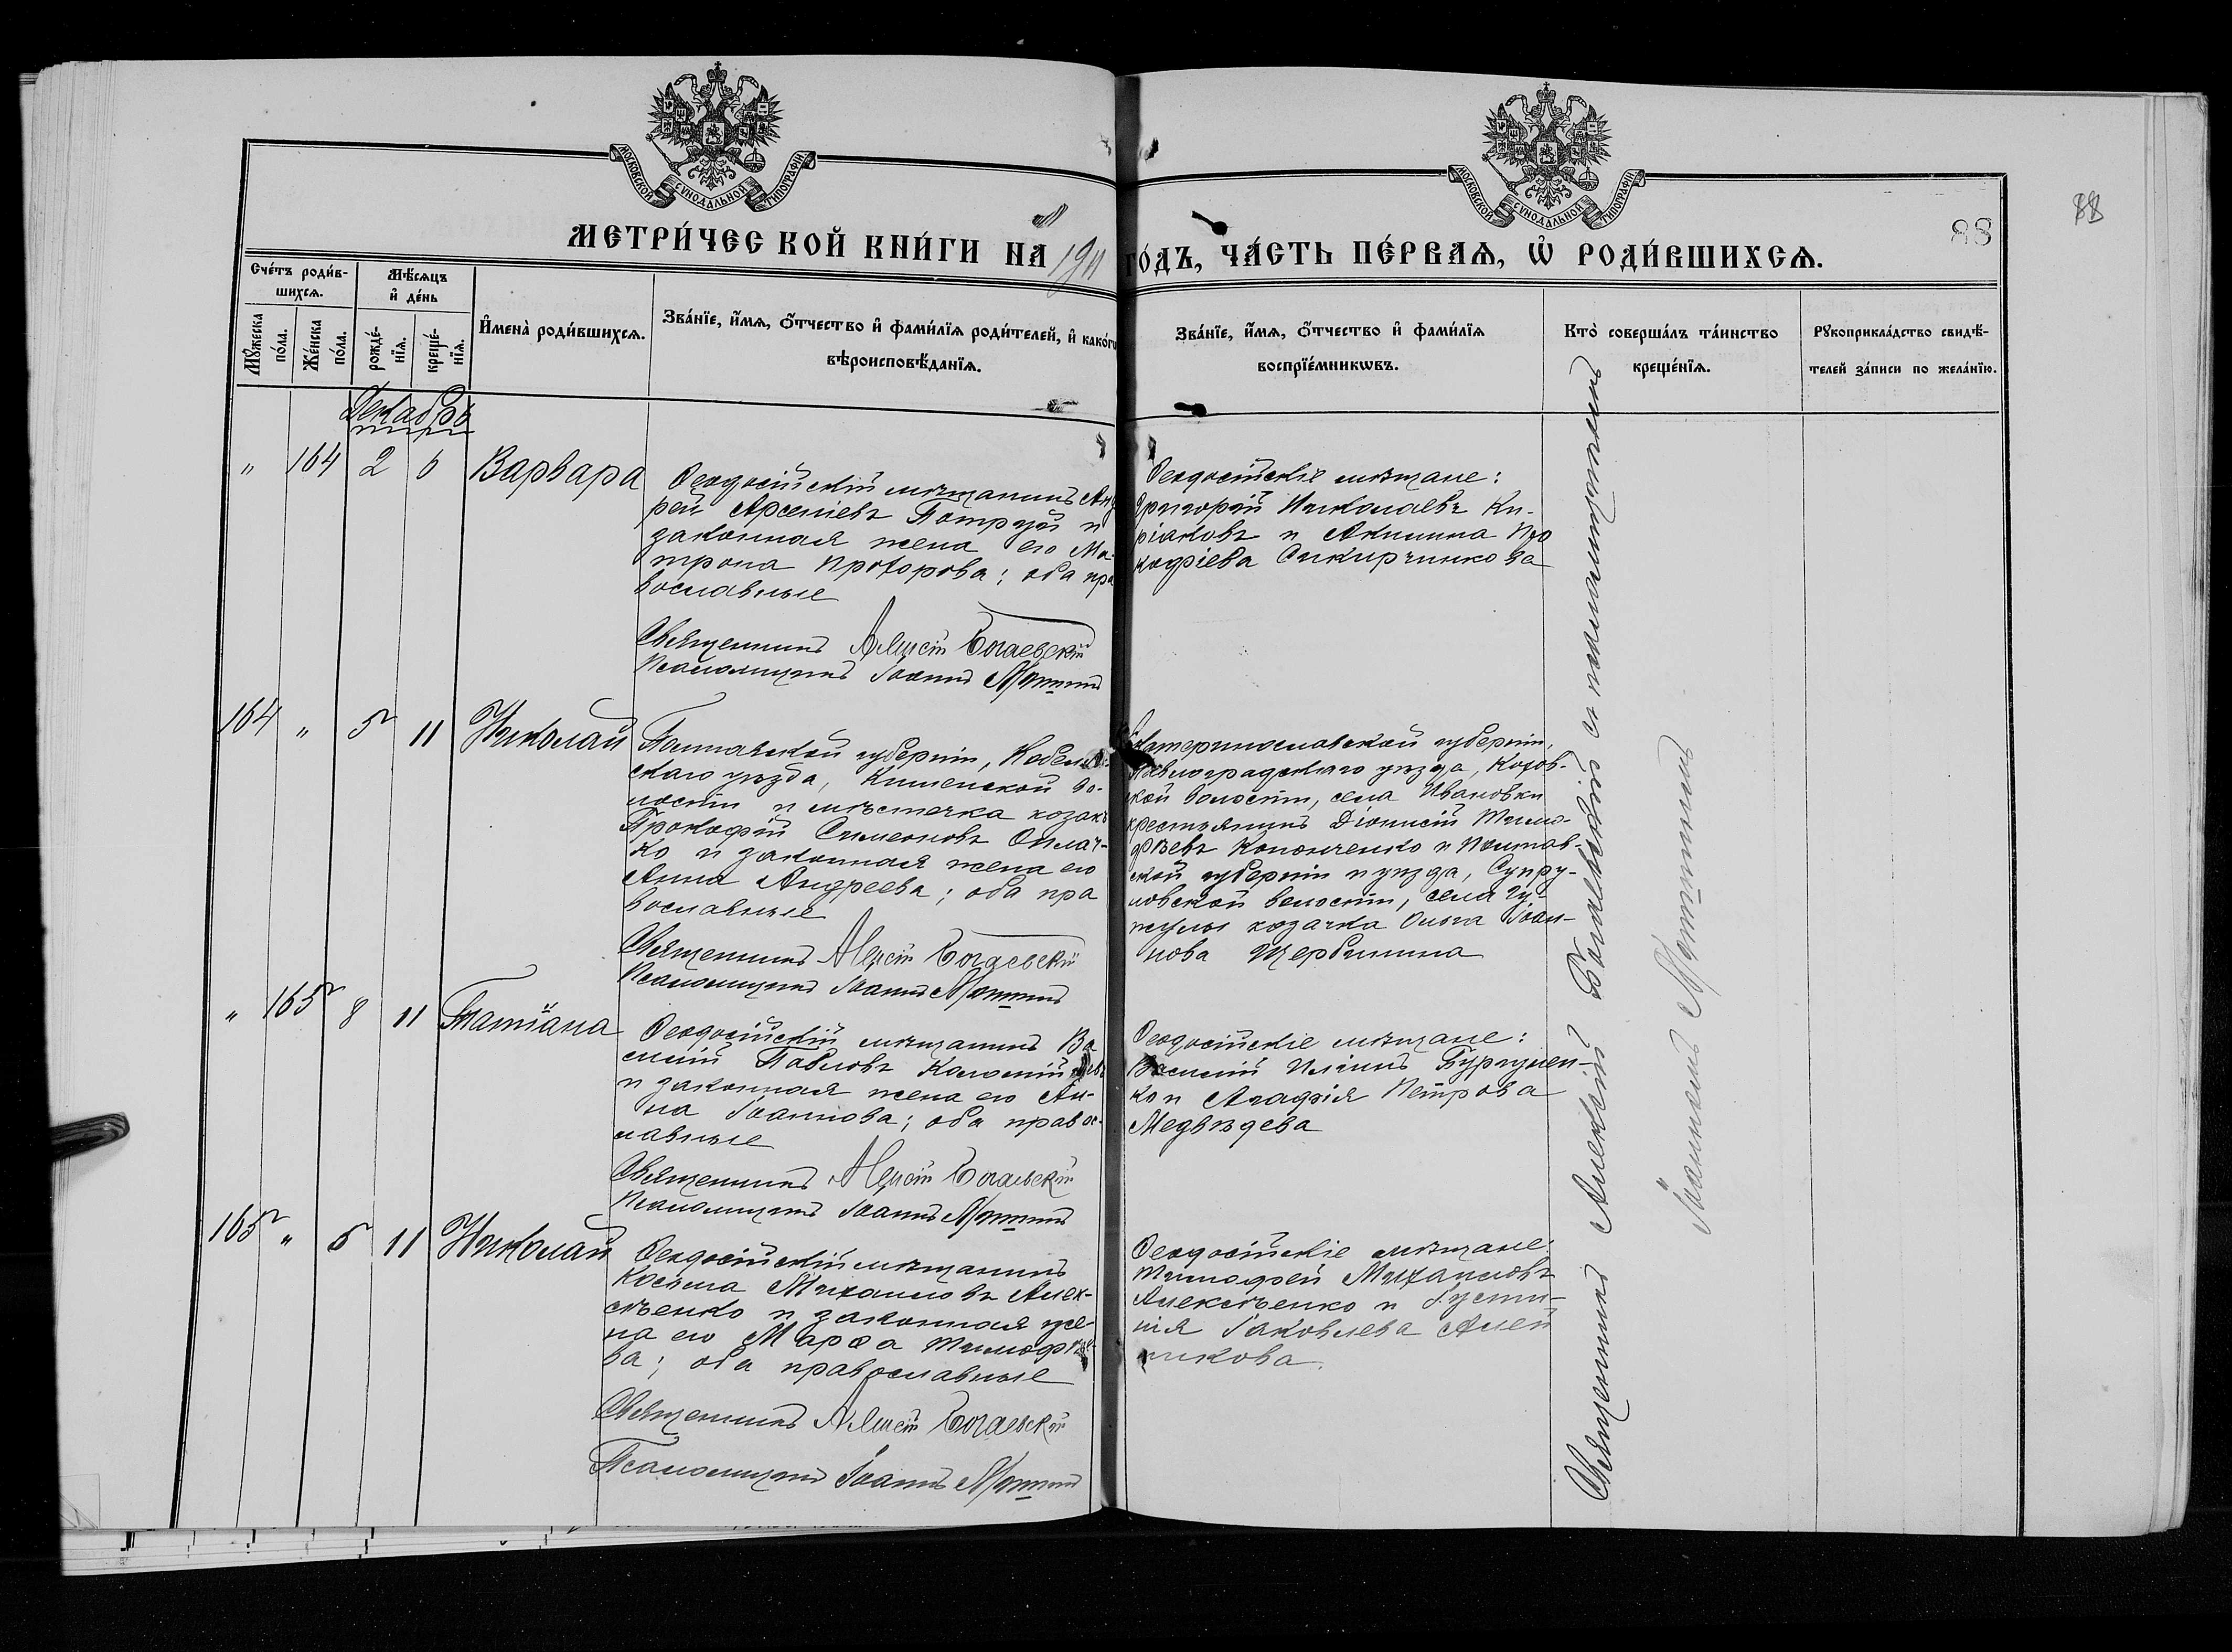 МОСКОВСКОЙ СѴНОДАЛЬНОЙ ТИПОГРАФІИ
МОСКОВСКОЙ СѴНОДАЛЬНОЙ ТИПОГРАФІИ
88
88
МЕТРИ́ЧЕСКОЙ КНИ́ГИ НА 1911 ГО́ДЪ, ЧА́СТЬ ПЕ́РВАѦ, Ѡ҆ РОДИ́ВШИХСѦ.
Сче́тъ роди́в-
шихсѧ.
Мꙋ́жеска
по́ла.
Же́нска
по́ла.
Мѣ́сѧцъ
и҆ де́нь
рожде́-
нїѧ.
креще́-
нїѧ.
И҆мена̀ роди́вшихсѧ.
Зва́нїе, и҆́мѧ, ѻ҆́тчество и҆ фами́лїѧ роди́телей, и҆ како́гѡ
вѣроисповѣ́данїѧ.
Зва́нїе, и҆́мѧ, ѻ҆́тчество и҆ фами́лїѧ
воспрїе́мникѡвъ.
Кто̀ соверша́лъ та́инство
креще́нїѧ.
Рꙋкоприкла́дство свидѣ́-
телей за́писи по жела́нїю.
Декабрь
" 164 2 6 Варвара
Ѳеодосійскій мѣщанинъ Анд
рей Арсеніевъ Потрусъ и
законная жена его Ма-
трона Прохорова; оба пра
вославные
Священникъ Алексій Богаевскій
Псаломщикъ Іоаннъ
Ѳеодосійскіе мѣщане:
Григорій Николаевъ Ки-
ріаковъ и Акилина Про
кофіева Сикирчинкова
164 " 5 11 Николай
Полтавской губерніи, Кобеляк-
скаго уѣзда, Кишенской во-
лости и мѣстечка козакъ
Прокофій Симеоновъ Оплач-
ко и законная жена его
Анна Андреева; оба пра
вославные
Священникъ Алексій Богаевскій
Псаломщикъ Іоаннъ
Екатеринославской губерніи,
Павлоградскаго уѣзда, Кохов-
ской волости, села Ивановки
крестьянинъ Діонисій Тимо-
фѣевъ Кононченко и Полтав-
ской губерніи и уѣзда, Супру-
новской волости, села Гу-
жулы козачка Ольга Іоан-
нова Щербинина
" 165 8 11 Татіана
Ѳеодосійскій мѣщанинъ Ва
силій Павловъ Коломійцевъ
и законная жена его Ан-
на Іоаннова; оба правос-
лавные
Священникъ Алексій Богаевскій
Псаломщикъ Іоаннъ
Ѳеодосійскіе мѣщане:
Василій Иліинъ Бурлучен-
ко и Агафія Петрова
Медвѣдева
165 " 5 11 Николай
Ѳеодосійскій мѣщанинъ
Косьма Михаиловъ Алек-
сѣенко и законная же-
на его Марѳа Тимофѣе-
ва; оба православные
Священникъ Алексій Богаевскій
Псаломщикъ Іоаннъ
Ѳеодосійскіе мѣщане:
Тимофей Михаиловъ
Алексѣенко и Іусти-
нія Іаковлева Алей
никова.
Священникъ Алексій Богаевскій съ псаломщикомъ
Іоанномъ